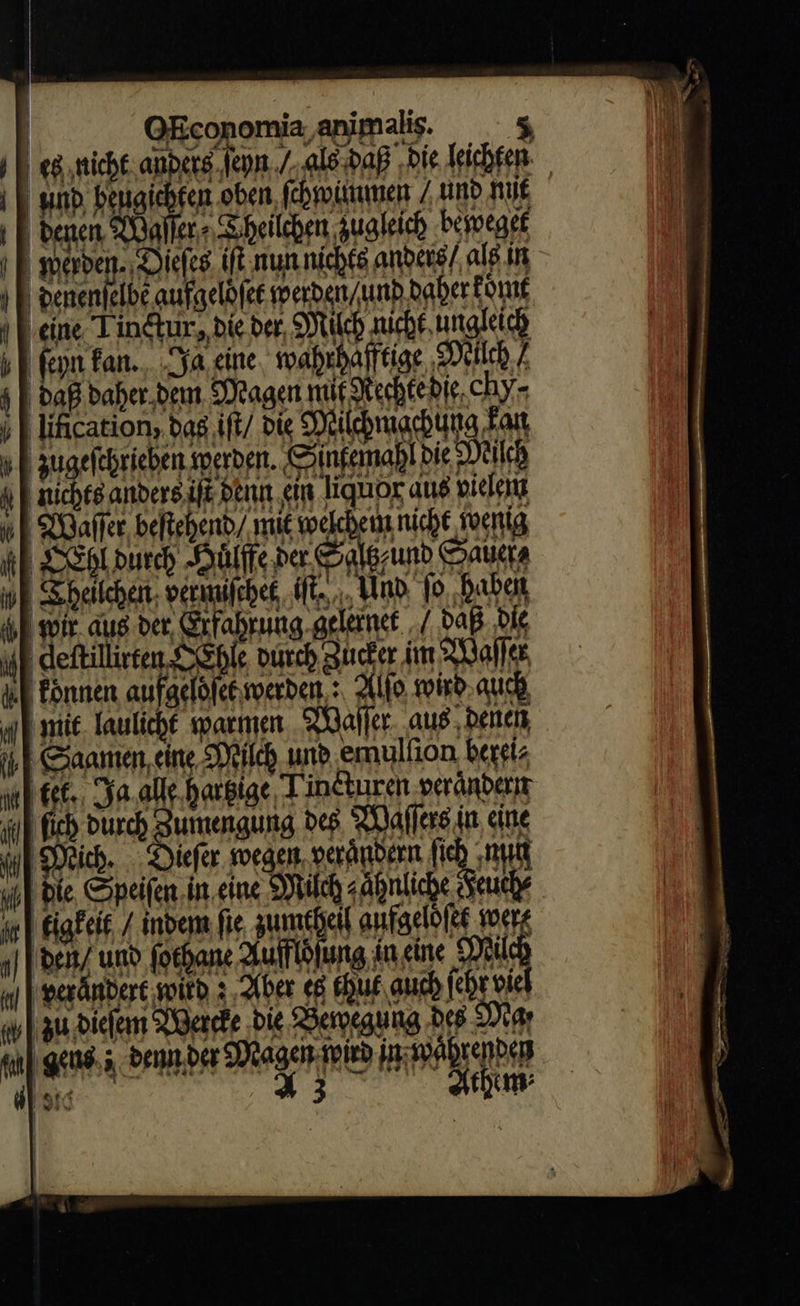 OEconomia animalis. 5
es nicht anders ſeyn / als daß die leichten
und beugichten oben ſchwimmen / und mit
denen Waſſer⸗Theilchen zugleich beweget
werden. Dieſes iſt nun nichts anders / als in
denenſelbē aufgeloͤſet werden / und daher koͤmt
eine Tinctur, die der Milch nicht ungleich
ſeyn kan. Ja eine wahrhafftige Milch /
daß daher dem Magen mit Rechte die chy-
lification, das iſt / die Milchmachung kan
zugeſchrieben werden. Sintemahl die Milch
nichts anders iſt denn ein liquor aus vielem
Waſſer beſtehend / mit welchem nicht wenig
OEhl durch Huͤlffe der Saltz⸗und Sauer⸗
Theilchen vermiſchet iſt. Und ſo haben
wir aus der Erfahrung gelernet / daß die
deſtillirten OEhle durch Zucker im Waſſer
koͤnnen aufgeloͤſet werden : Alſo wird auch
mit laulicht warmen Waſſer aus denen
Saamen eine Milch und emulſion berei⸗
tet. Ja alle hartzige Tincturen veraͤndern
ſich durch Zumengung des Waſſers in eine
Mich. Dieſer wegen veraͤndern ſich nun
die Speiſen in eine Milch⸗aͤhnliche Feuch⸗
tigkeit / indem ſie zumtheil aufgeloͤſet wer⸗
den / und ſothane Auffloͤſung in eine Milch
veraͤndert wird : Aber es thut auch ſehr viel
zu dieſem Wercke die Bewegung des Ma⸗
gens ; denn der Magen wird in waͤhrenden
A 3 Athem⸗